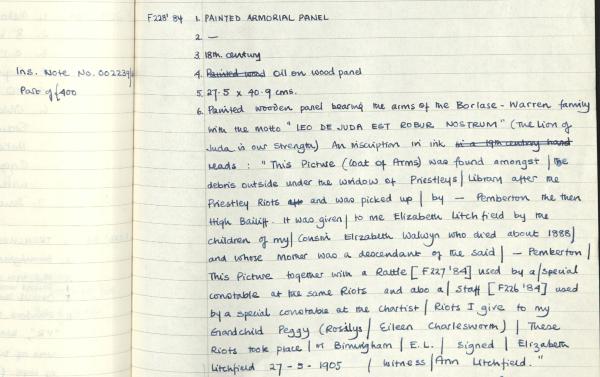 F228' 84 1. PAINTED ARMORIAL PANEL
2. —
3. 18th. century
Ins. Note No. 002239/
4. Painted wood Oil on wood panel
Part of £400
5. 27.5 x 40.9 cms.
6. Painted wooden panel bearing the arms of the Borlase-Warren family
with the motto "LEO DE JUDA EST ROBUR NOSTRUM" (The Lion of
Juda is our Strength) An inscription in ink in a 19th century hand
reads : "This Picture (Coat of Arms) was found amongst | the
debris outside under the window of Priestleys | Library after the
Priestley Riots and was picked up | by — Pemberton the then
High Bailiff. It was given | to me Elizabeth Litchfield by the
children of my | Cousin Elizabeth Walwyn who died about 1888 |
and whose Mother was a descendant of the said | — Pemberton |
This Picture together with a Rattle [F227 '84] used by a | special
constable at the same Riots and also a | Staff [F226 '84] used
by a special constable at the Chartist | Riots I give to my
Grandchild Peggy (Rosilys | Eileen Charlesworth) | These
Riots took place | in Birmingham | E.L. | signed | Elizabeth
Litchfield 27-5-1905 | Witness | Ann Litchfield."